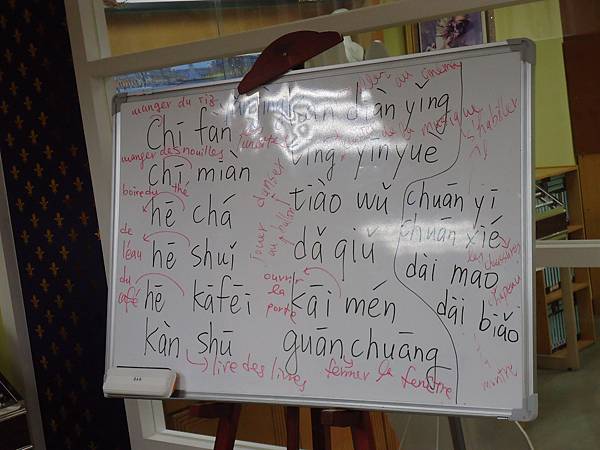 manger du riz
chī fàn
manger des nouilles
chī miàn
boire du thé
hē chá
de l'eau
hē shuǐ
du café
hē kāfēi
kàn shū
lire des livres
diàn yǐng
au cinéma
yīn yuè
la musique
tiào wǔ
danser
dǎ qiú
jouer au ballon
ouvrir la porte
kāi mén
guān chuāng
fermer la fenêtre
s'habiller
chuān yī
chuān xié
les chaussures
dài mao
chapeau
dài biǎo
montre